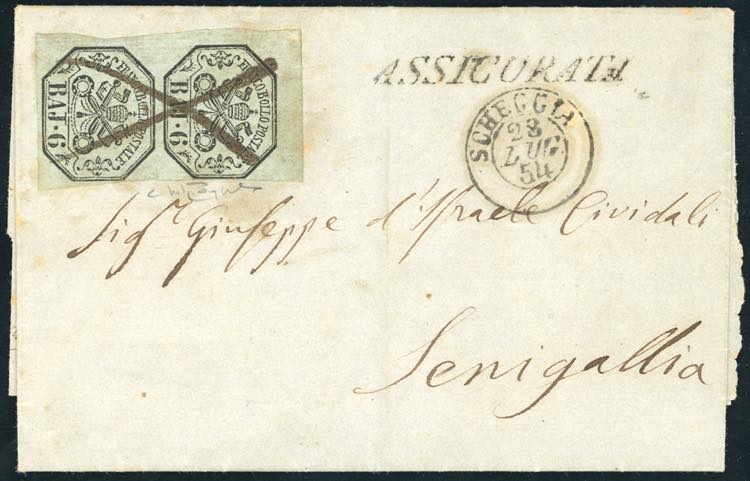 FRANCO BOLLO POSTALE
BAJ·6
FRANCO BOLLO POSTALE
BAJ·6
ASSICURATA
SCHEGGIA
23
LUG
54
Sigr. Giuseppe d'Israele Cividali
Senigallia